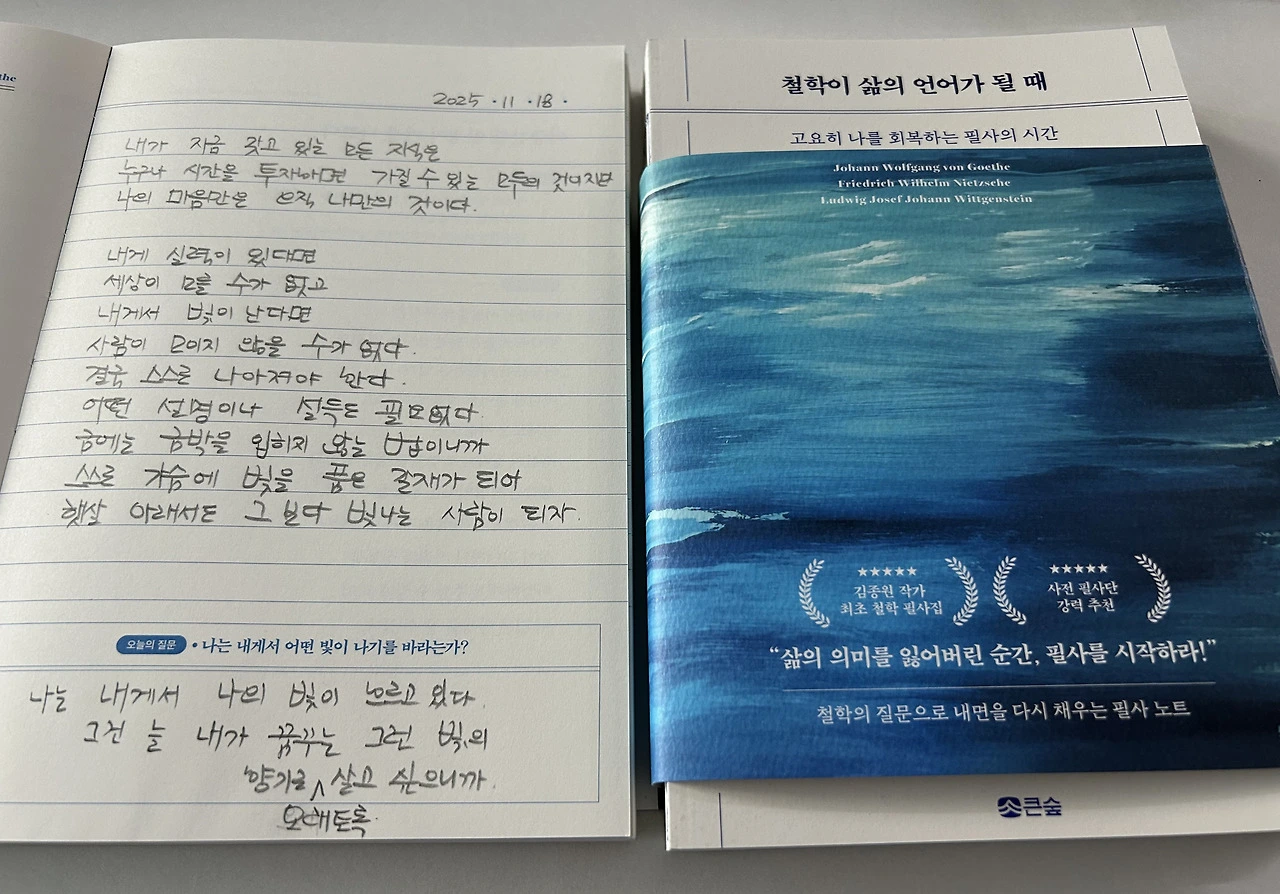 the
2025 · 11 · 18 ·
내가 지금 갖고 있는 모든 지식은
누구나 시간을 투자하면 가질 수 있는 모두의 것이지만
나의 마음만은 오직 나만의 것이다.
내게 실력이 있다면
세상이 모를 수가 없고
내게서 빛이 난다면
사람이 모이지 않을 수가 없다.
결국 스스로 나아져야 한다.
어떤 설명이나 설득도 필요없다.
금에는 금박을 입히지 않는 법이니까
스스로 가슴에 빛을 품은 존재가 되어
햇살 아래서도 그 보다 빛나는 사람이 되자.
오늘의 질문 • 나는 내게서 어떤 빛이 나기를 바라는가?
나는 내게서 나의 빛이 흐르고 있다.
그건 늘 내가 꿈꾸는 그런 빛의
향기로 ∧ 살고 싶으니까.
오래토록.
철학이 삶의 언어가 될 때
고요히 나를 회복하는 필사의 시간
Johann Wolfgang von Goethe
Friedrich Wilhelm Nietzsche
Ludwig Josef Johann Wittgenstein
★★★★★
김종원 작가
최초 철학 필사집
★★★★★
사전 필사단
강력 추천
“삶의 의미를 잃어버린 순간, 필사를 시작하라!”
철학의 질문으로 내면을 다시 채우는 필사 노트
큰숲